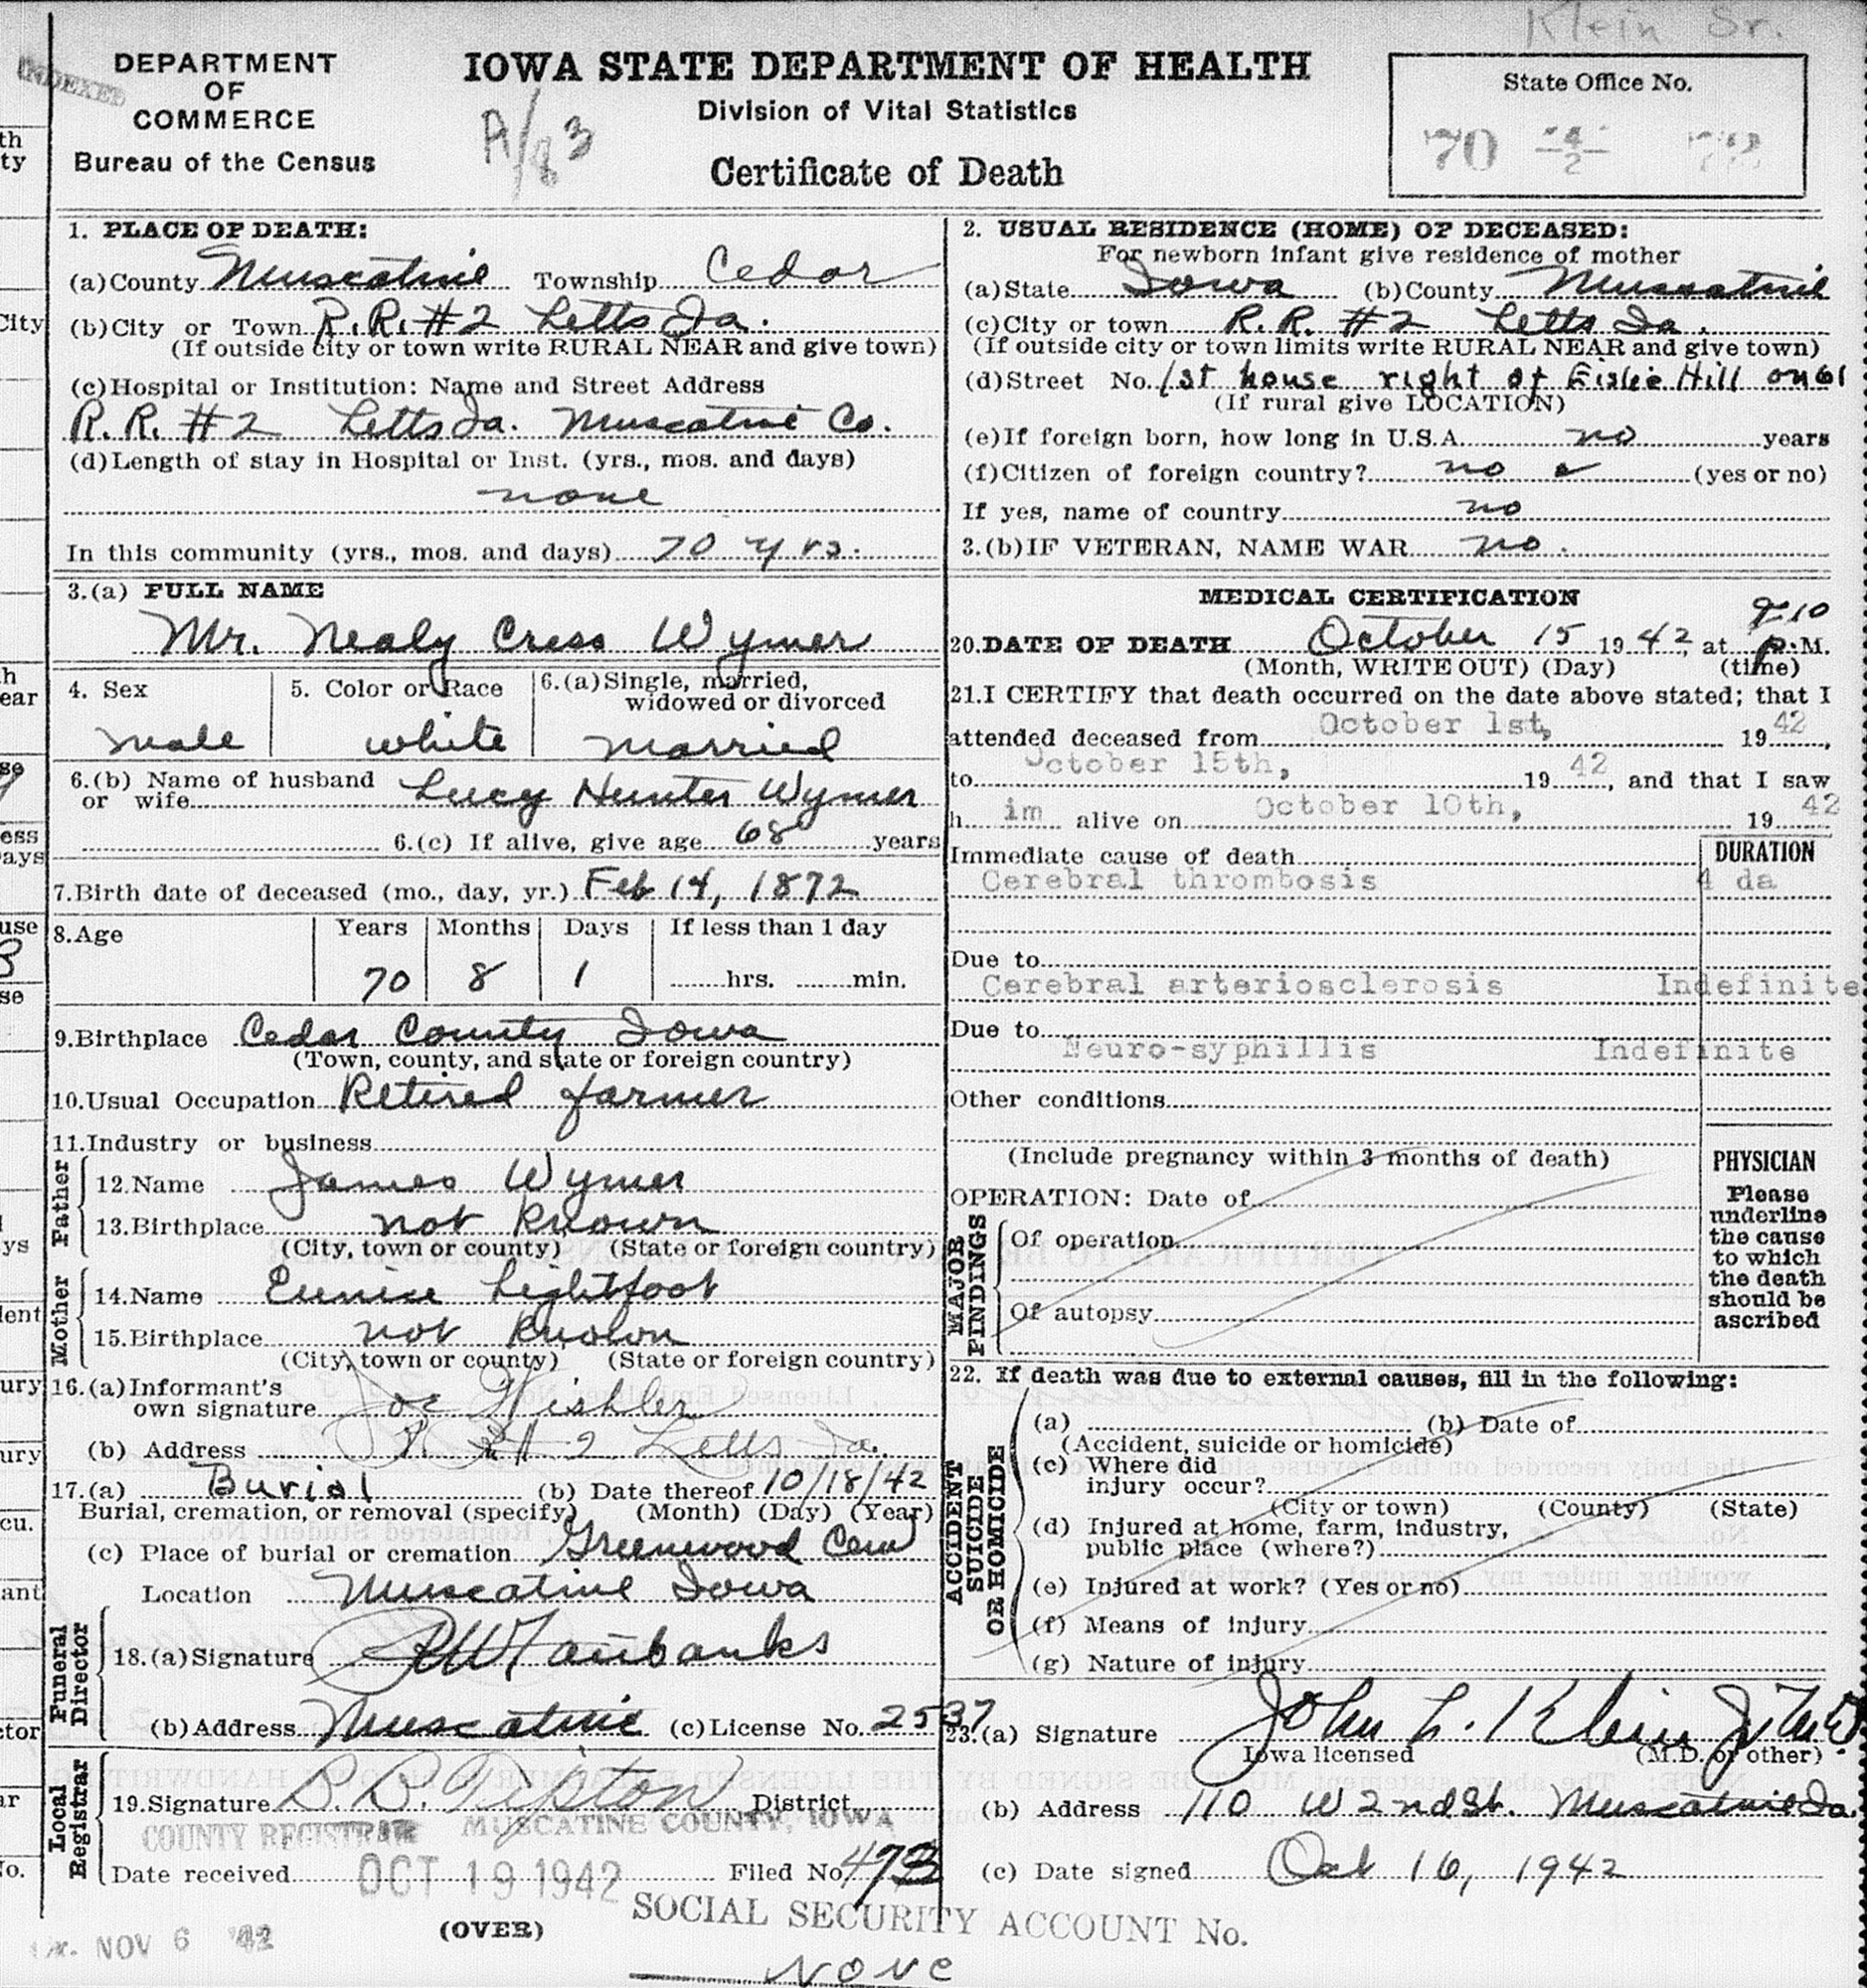 Klein Sr.
INDEXED
DEPARTMENT
OF
COMMERCE
Bureau of the Census
IOWA STATE DEPARTMENT OF HEALTH
Division of Vital Statistics
Certificate of Death
A/83
State Office No.
70
1. PLACE OF DEATH:
(a) County Muscatine Township Cedar
(b) City or Town R.R. #2 Letts Ia.
(If outside city or town write RURAL NEAR and give town)
(c) Hospital or Institution: Name and Street Address
R.R. #2 Letts Ia. Muscatine Co.
(d) Length of stay in Hospital or Inst. (yrs., mos. and days)
none
In this community (yrs., mos. and days) 70 yrs.
2. USUAL RESIDENCE (HOME) OF DECEASED:
For newborn infant give residence of mother
(a) State Iowa (b) County Muscatine
(c) City or town R.R. #2 Letts Ia.
(If outside city or town limits write RURAL NEAR and give town)
(d) Street No. 1st house right of Hill on 61
(If rural give LOCATION)
(e) If foreign born, how long in U.S.A. no years
(f) Citizen of foreign country? no (yes or no)
If yes, name of country no
3. (b) IF VETERAN, NAME WAR no.
3. (a) FULL NAME
Mr. Nealy Cress Wymer
4. Sex
male
5. Color or Race
white
6. (a) Single, married,
widowed or divorced
married
6. (b) Name of husband
or wife Lucy Hunter Wymer
6. (c) If alive, give age 68 years
7. Birth date of deceased (mo., day, yr.) Feb 14, 1872
8. Age Years Months Days If less than 1 day
70 8 1 hrs. min.
9. Birthplace Cedar County Iowa
(Town, county, and state or foreign country)
10. Usual Occupation Retired farmer
11. Industry or business
Father
12. Name James Wymer
13. Birthplace not known
(City, town or county) (State or foreign country)
Mother
14. Name Eunice Lightfoot
15. Birthplace not known
(City, town or county) (State or foreign country)
16. (a) Informant's
own signature Joe Wishler
(b) Address R. R # 2 Letts Ia.
17. (a) Burial (b) Date thereof 10/18/42
Burial, cremation, or removal (specify) (Month) (Day) (Year)
(c) Place of burial or cremation Greenwood Cem
Location Muscatine Iowa
Funeral Director
18. (a) Signature Fairbanks
(b) Address Muscatine (c) License No. 2537
Local Registrar
19. Signature B.B. Tipton District
COUNTY REGISTRAR MUSCATINE COUNTY, IOWA
Date received OCT 19 1942 Filed No. 473
NOV 6 '42
(OVER)
SOCIAL SECURITY ACCOUNT No.
none
MEDICAL CERTIFICATION
20. DATE OF DEATH October 15 1942, at P.M.
(Month, WRITE OUT) (Day) (time)
21. I CERTIFY that death occurred on the date above stated; that I
attended deceased from October 1st, 1942,
to October 15th, 1942, and that I saw
him alive on October 10th, 1942
DURATION
Immediate cause of death
Cerebral thrombosis 4 da
Due to
Cerebral arteriosclerosis Indefinite
Due to
Neuro-syphillis Indefinite
Other conditions
(Include pregnancy within 3 months of death)
OPERATION: Date of
MAJOR FINDINGS
Of operation
Of autopsy
PHYSICIAN
Please
underline
the cause
to which
the death
should be
ascribed
22. If death was due to external causes, fill in the following:
ACCIDENT SUICIDE OR HOMICIDE
(a) (b) Date of
(Accident, suicide or homicide)
(c) Where did
injury occur?
(City or town) (County) (State)
(d) Injured at home, farm, industry,
public place (where?)
(e) Injured at work? (Yes or no)
(f) Means of injury
(g) Nature of injury
23. (a) Signature John L. Klein Jr M.D.
Iowa licensed (M.D. or other)
(b) Address 110 W 2nd St. Muscatine Ia.
(c) Date signed Oct 16, 1942